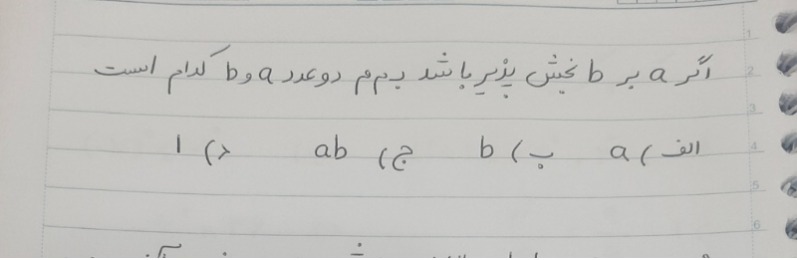 اگر a بر b بخش پذیر باشد ب م م دو عدد a و b کدام است
الف) a ب) b ج) ab د) 1